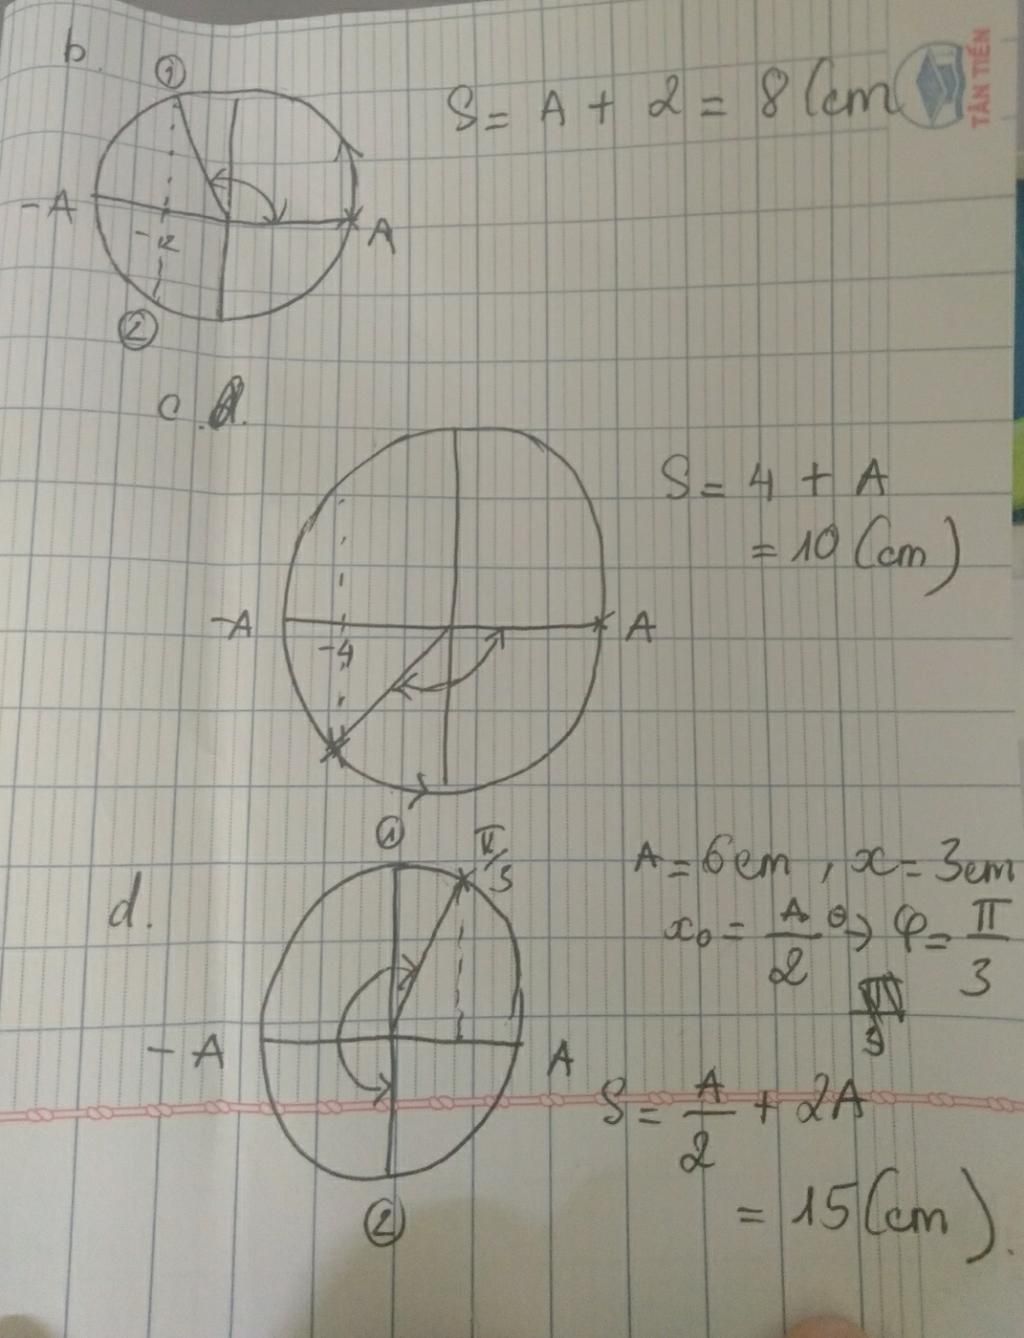 b.
①
S = A + 2 = 8 (cm
TÂN TIẾN
-A
-2
A
②
c.
S = 4 + A
= 10 (cm)
-A
-4
A
①
π/3
d.
A = 6cm , x = 3cm
x₀ = A/2 → φ = π/3
-A
A
S = A/2 + 2A
②
= 15 (cm).